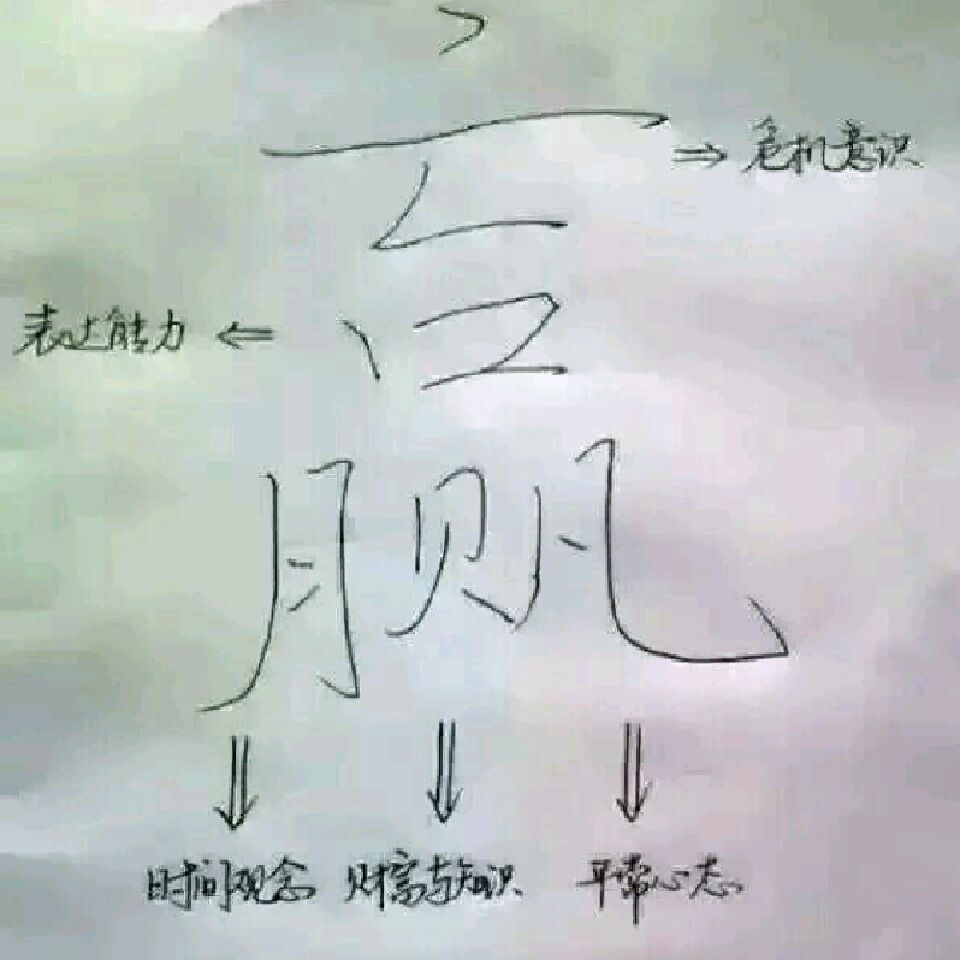 ⇒ 危机意识
赢
表达能力 ⇐
时间观念 财富与知识 平常心态